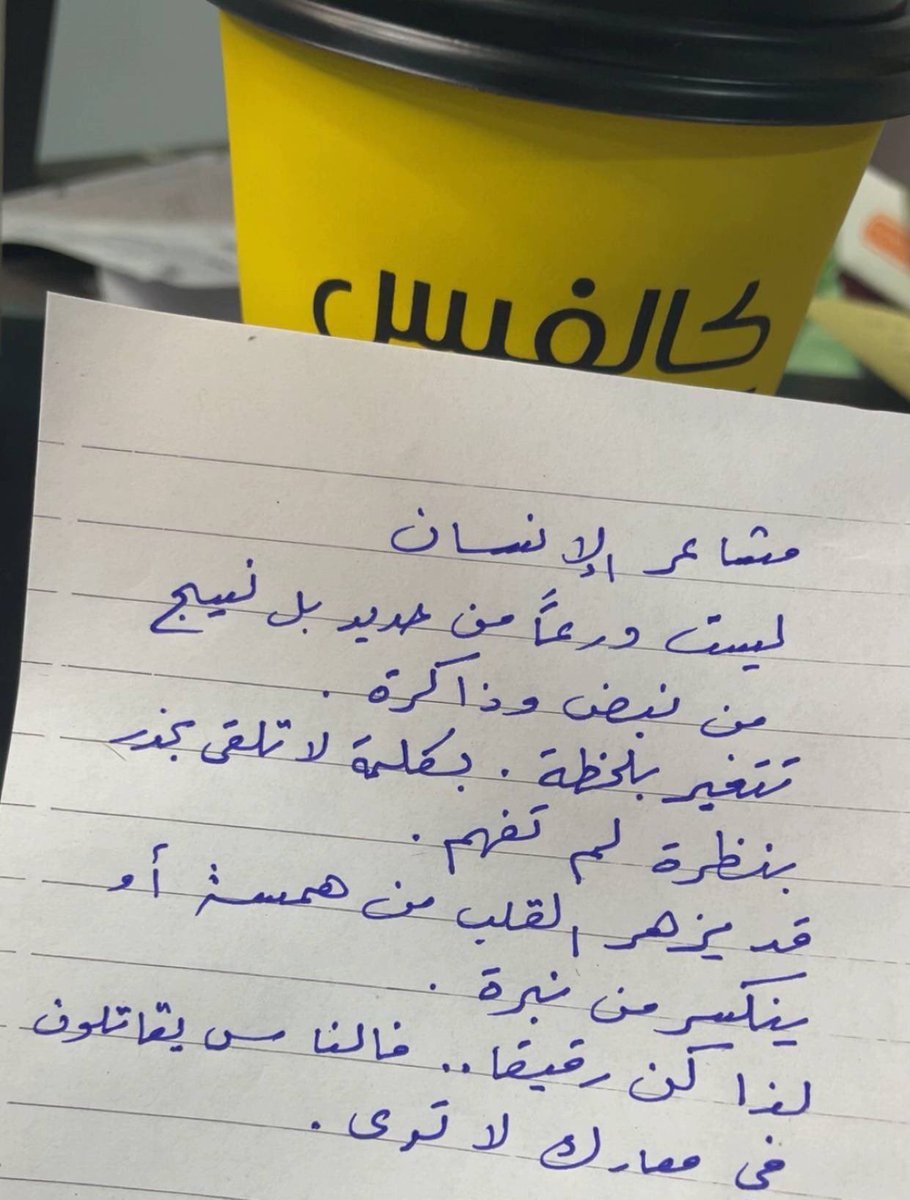 كالفيس
مشاعر الإنسان
ليست درعاً من حديد بل نسيج
من نبض وذاكرة .
تتغير بلحظة . بكلمة لا تلقى بحذر
بنظرة لم تفهم .
قد يزهر القلب من همسة أو
ينكسر من نبرة .
لذا كن رقيقا .. فالناس يقاتلون
في معارك لا ترى .